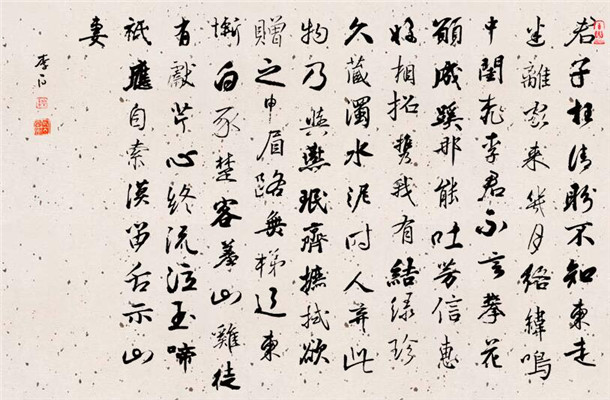 君子枉清盼不知東走
迷離家來幾月絡緯鳴
中閨桃李君不言攀花
願成蹊那能吐芳信惠
好相招攜我有結綠珍
久藏濁水泥时人弃此
物乃與燕珉齊摭拭欲
贈之申眉路無梯辽東
慚白豕楚客羞山雞徒
有獻芹心終流泣玉啼
祇應自索漠留舌示山
妻
李白